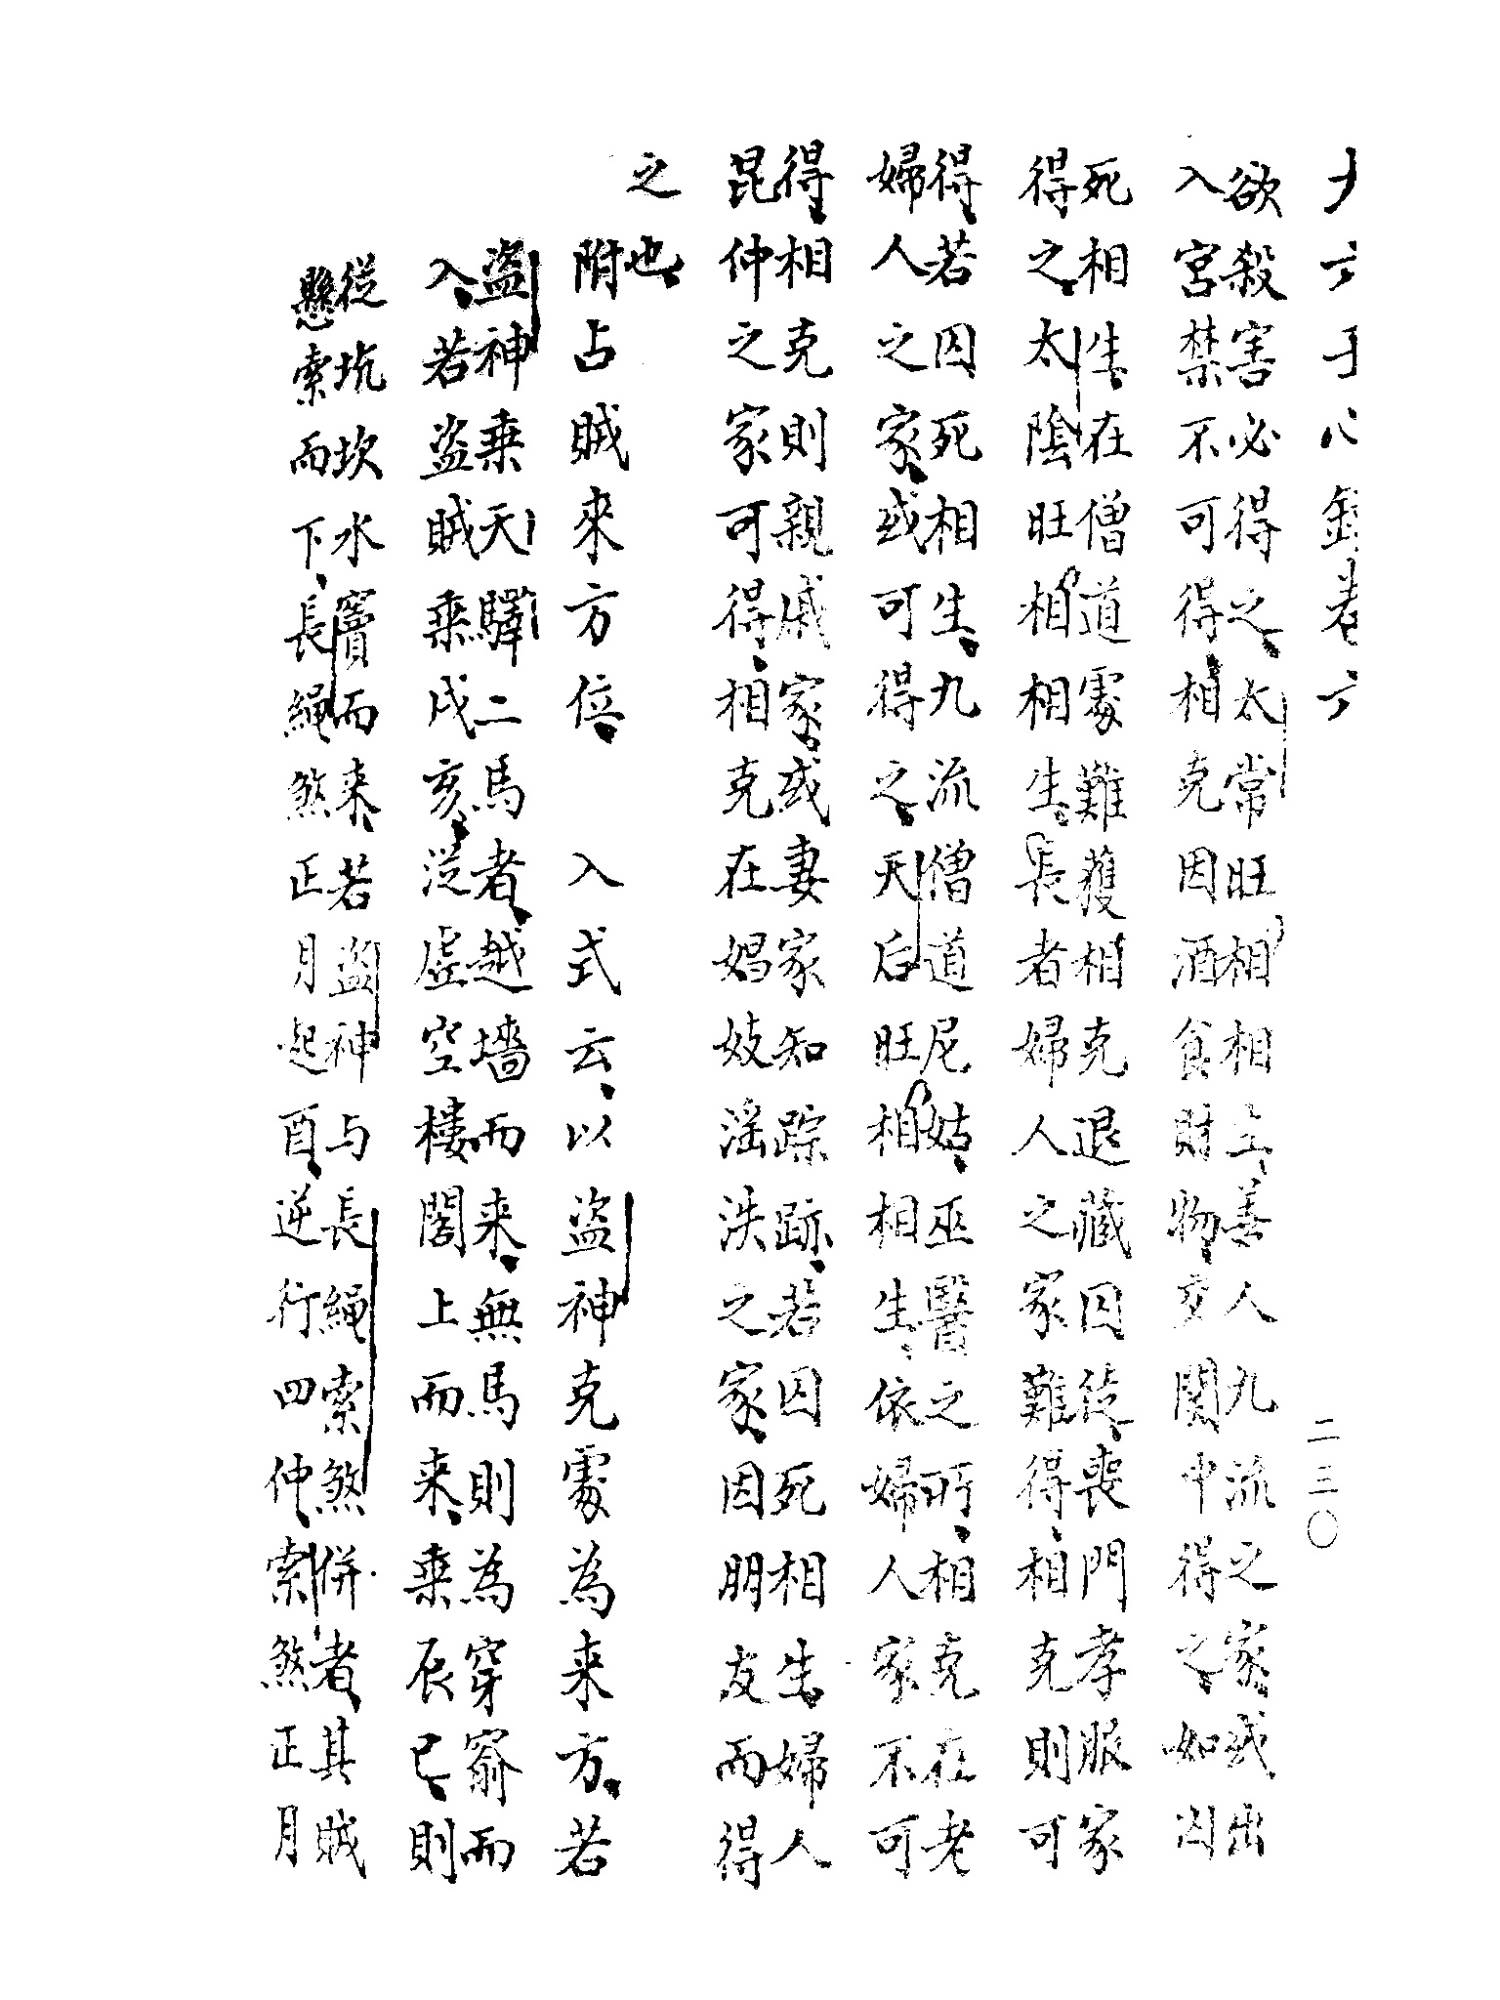 卷六
欲殺害必得之、太常旺相相生、善人九流之家、或出
入宮禁不可得、相克因酒食財物、交関中得之、如囚
死相生、在僧道處難獲相克退藏囚徒、喪門孝服家
得之、太陰旺相相生、長者婦人之家難得、相克則可
得、若囚死相生、九流僧道尼姑、巫醫之所、相克在老
婦人之家、或可得之、天后旺相相生、依婦人家不可
得、相克則親戚家、或妻家知踪跡、若囚死相生、婦人
昆仲之家可得、相克在娼妓滛泆之家、因朋友而得
之也、
附占賊來方位、 入式云、以盜神克處為来方、若
盜神乗天驛二馬者、越墻而来、無馬則為穿窬而
入、若盜賊乗戌亥、從虛空樓閣上而来、乗辰巳、則
從坑坎水竇而来、若盜神与長繩索煞併者、其賊
懸索而下、長繩煞正月起酉、逆行四仲、索煞正月
二三〇